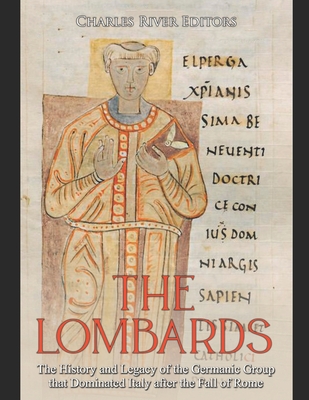 CHARLES RIVER EDITORS
ELPERGA
XPIANIS
SIMA BE
NEVENTI
DOCTRI
CE CON
IUS DOM
NI ARGIS
SAPIEN
CATHOLICI
THE
LOMBARDS
The History and Legacy of the Germanic Group
that Dominated Italy after the Fall of Rome